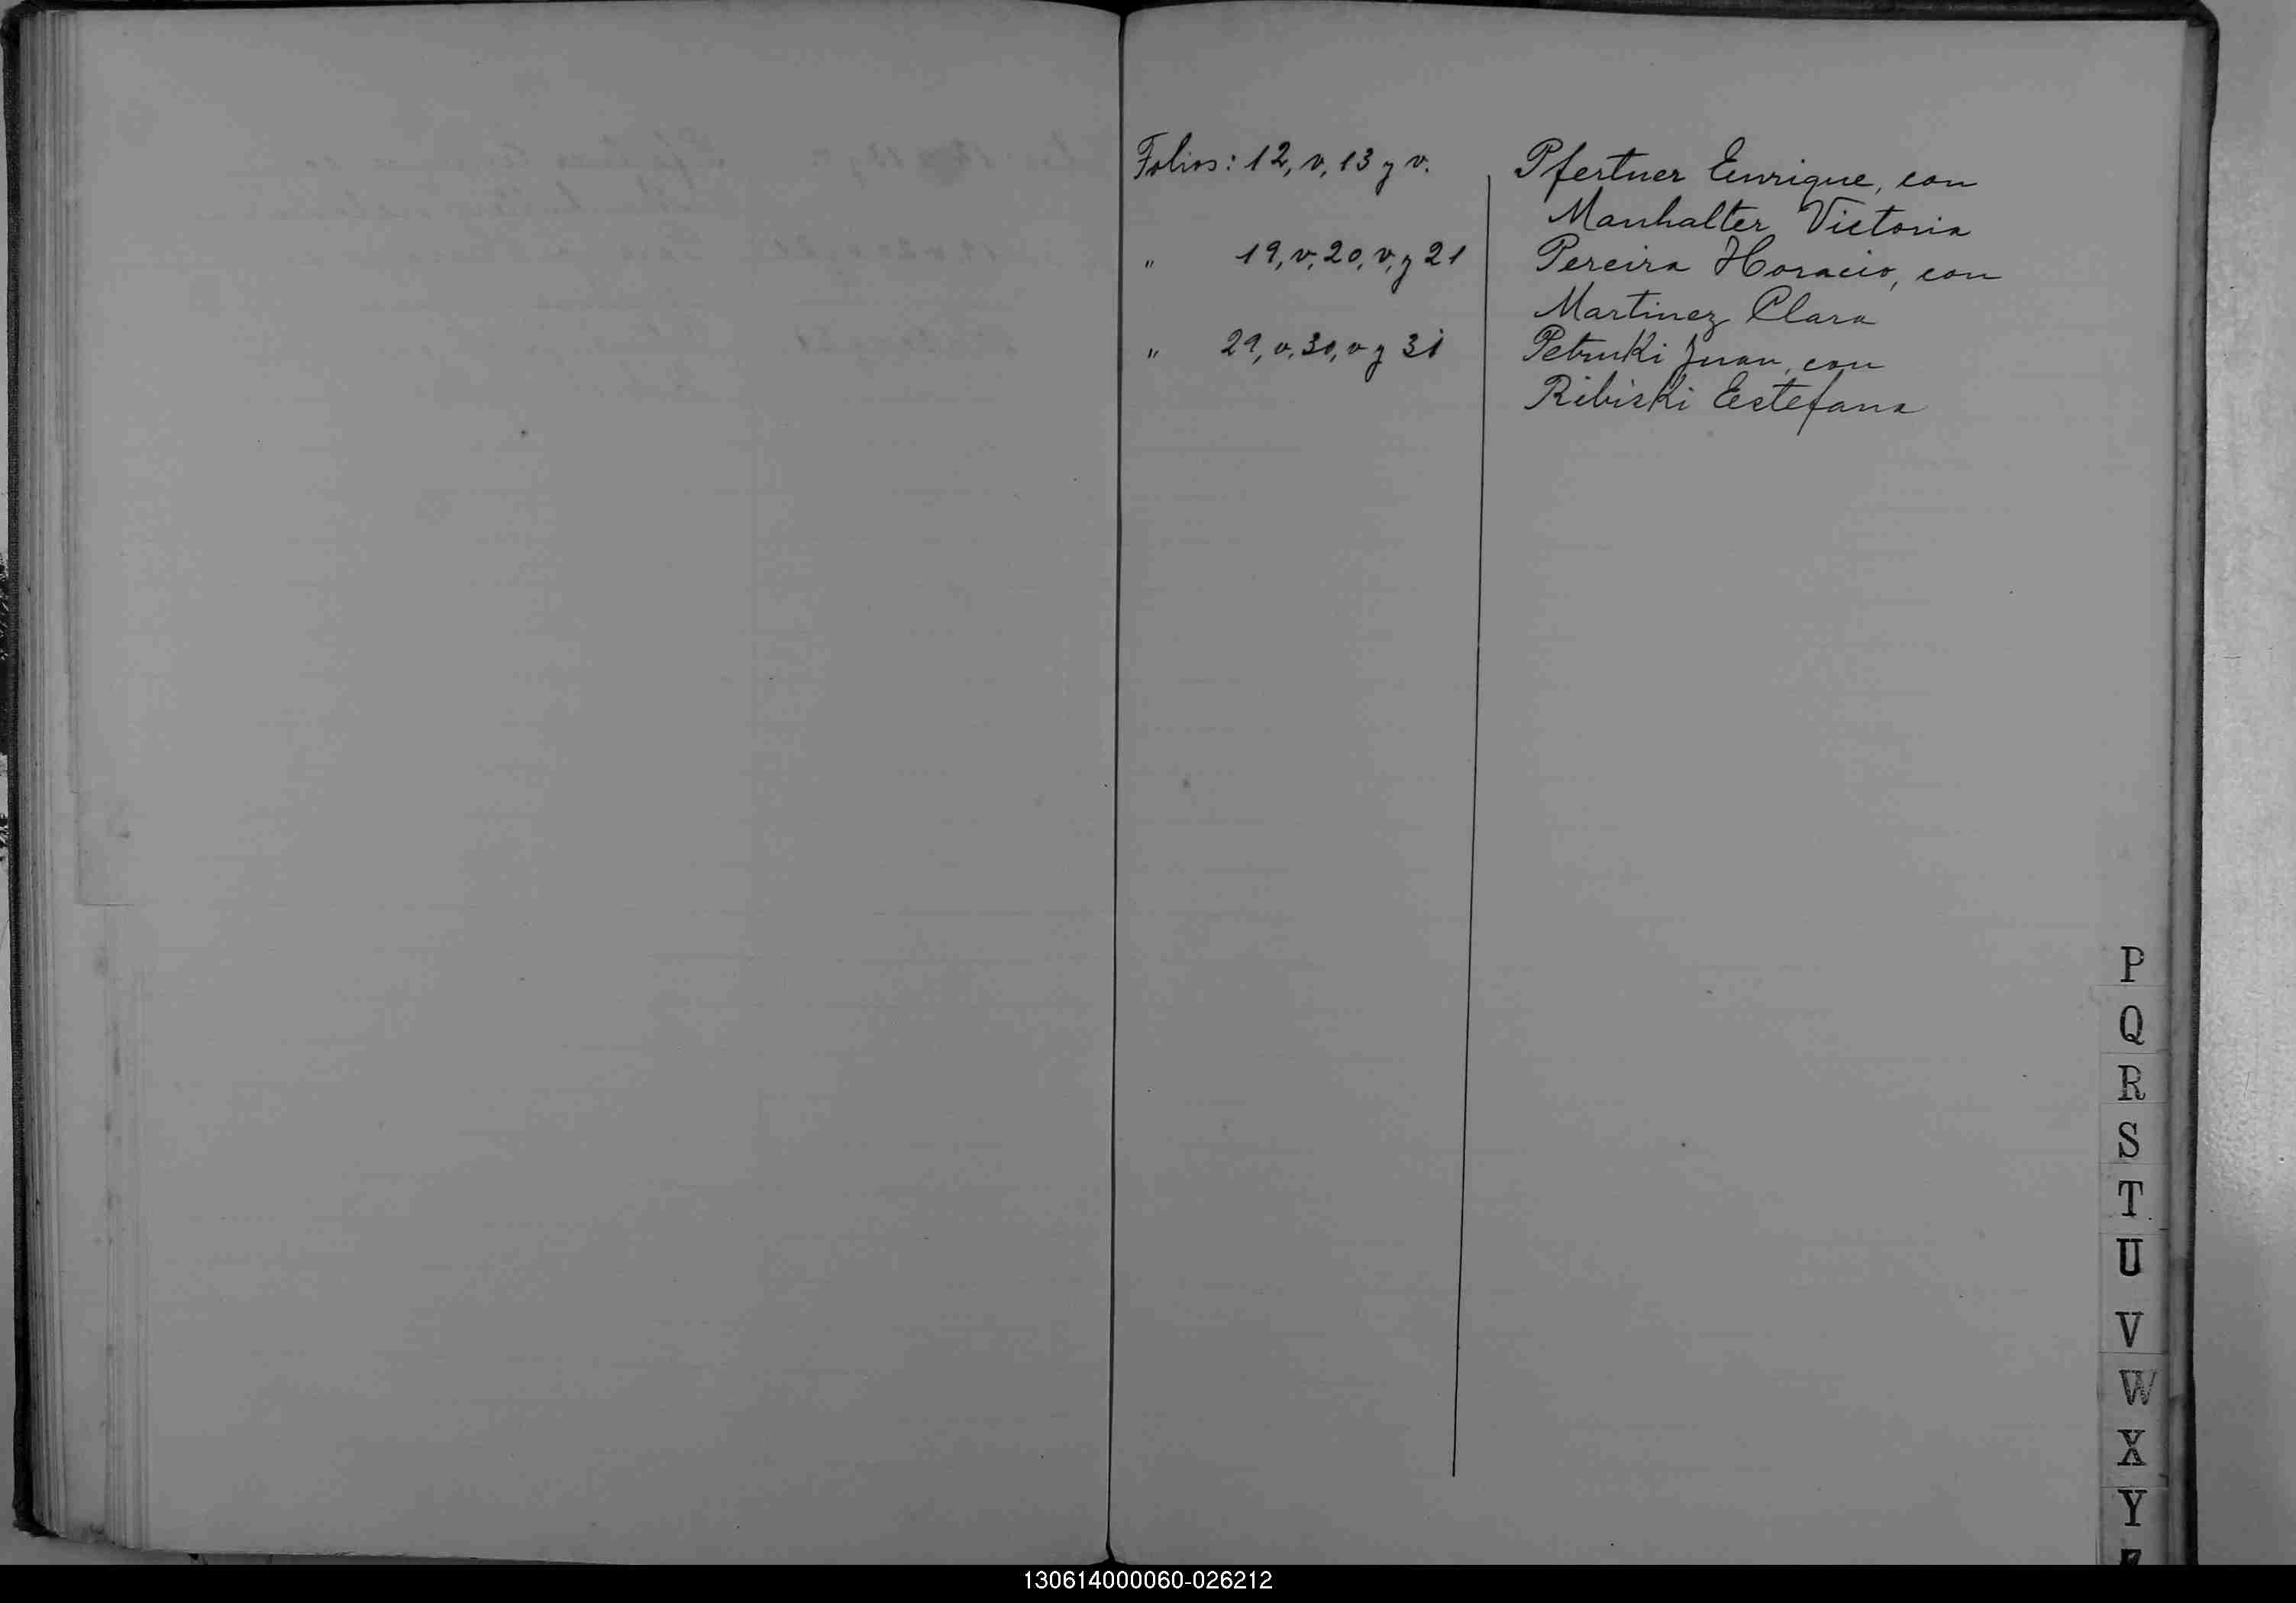 Folios: 12, v, 13 y v. Pfertner Enrique, con
Manhalter Victoria
" 19, v, 20, v, y 21 Pereira Horacio, con
Martinez Clara
" 29, v, 30, v y 31 Petruki Juan, con
Ribiski Estefana
P
Q
R
S
T
U
V
W
X
Y
130614000060-026212